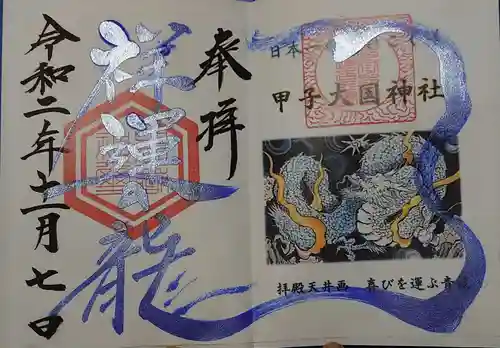 日本一
甲子大国神社
拝殿天井画 喜びを運ぶ青龍
奉拝
祥運龍
令和二年十一月七日